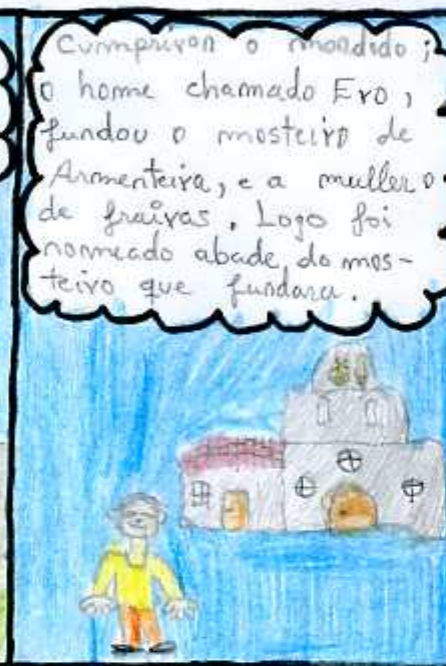 Cumpriron o mandado;
o home chamado Ero,
fundou o mosteiro de
Armenteira, e a muller o
de freiras. Logo foi
nomeado abade do mos-
teiro que fundara.